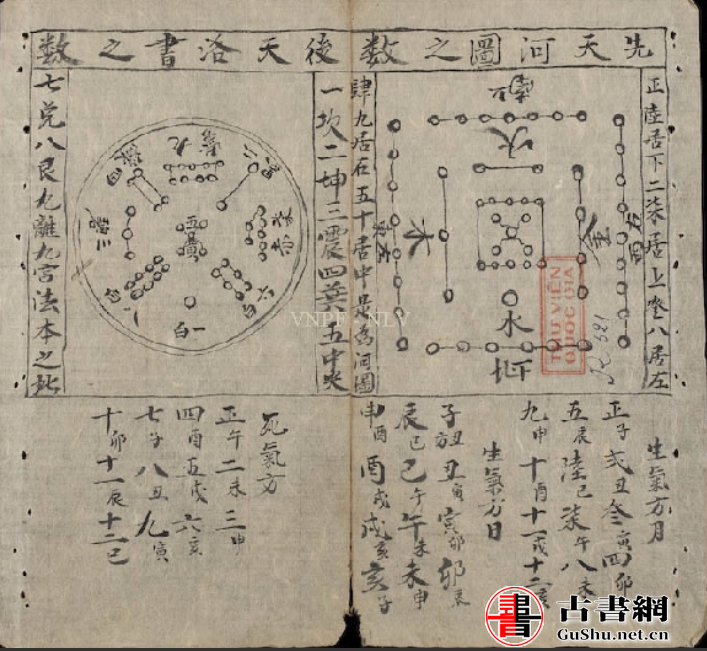 先天河圖之数
後天洛書之数
正陸居下二柒居上叄八居左
肆九居右五十居中是為河圖
一坎二坤三震四巽五中央
七兌八艮九離九宮法本之此
南
火
木
金
水
北
九
五黃
一白
生氣方月
正子弍丑叄寅四卯
五辰陸巳柒午八未
九申十酉十一戌十二亥
生氣方日
子丑丑寅寅卯卯辰
辰巳巳午午未未申
申酉酉戌戌亥亥子
死氣方
正午二未三申
四酉五戌六亥
七子八丑九寅
十卯十一辰十二巳
THƯ VIỆN
QUỐC GIA
R. 321
VNPF NLV
古書網
GuShu.net.cn